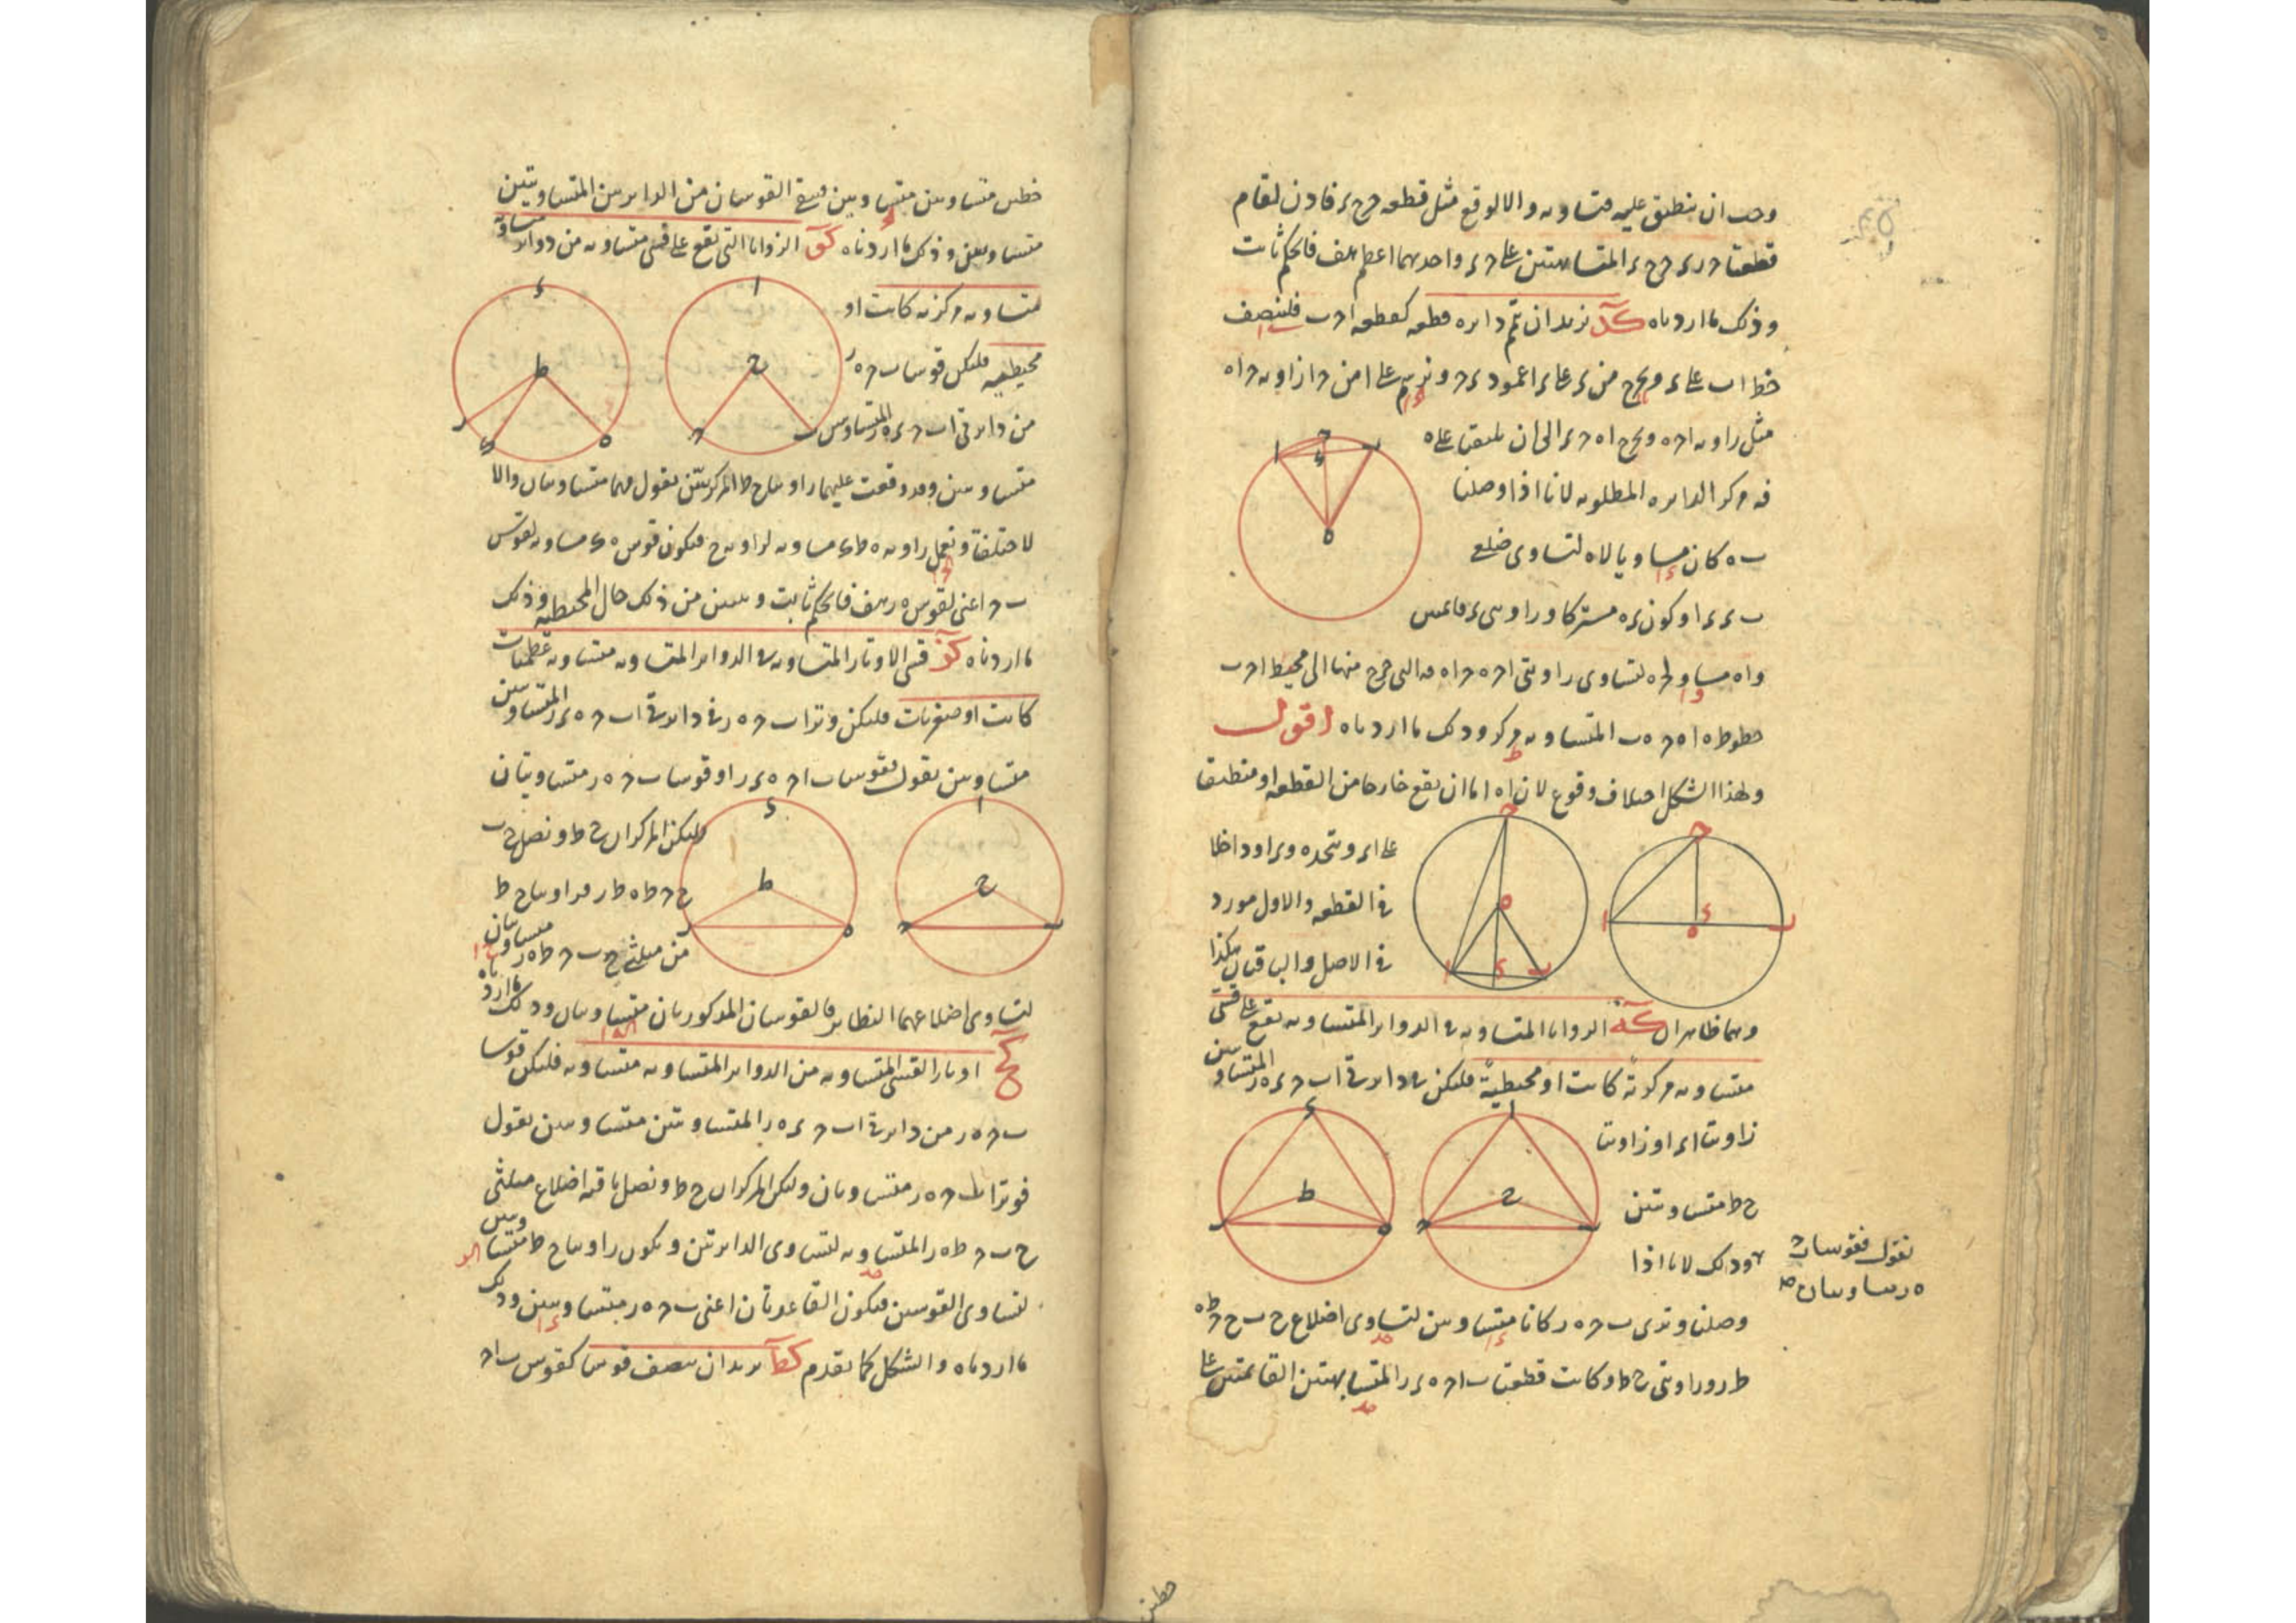 وجب ان ينطبق عليه فتساويه والا لوقع مثل قطعة ح ح ء فاذن لقام
قطعتا ح ر ء ح ح ء المتشابهتين على ح ء واحديهما اعظم هف فالحكم ثابت
وذلك ما اردناه كد نريد ان نتم دايره قطعه كقطعه ا ح ب فلينصف
خط ا ب على ء ونخرج من ء على ء ا عمود ء ح ونرسم على ا من ح ا زاويه ح ا ه
مثل زاويه ا ح ه ونخرج ا ه ح ء الى ان يلتقيا على ه
فه مركز الدايره المطلوبه لانا اذا وصلنا
ب ه كان مساويا لاه لتساوى ضلعى
ب ء ء ا وكون ء ه مشتركا وزاويتى ء قائمتين
وا ه مساو لح ه لتساوى زاويتى ا ح ه ح ا ه فه التى خرج منها الى محيط ا ح ب
خطوط ه ا ه ح ه ب المتساويه مركز وذلك ما اردناه اقول
ولهذا الشكل اختلاف وقوع لان ا ه اما ان يقع خارجا من القطعه او منطبقا
على ا ء ويتحد ه و ء او داخلا
فى القطعه والاول مورد
فى الاصل والباقيان هكذا
وهما ظاهران كه الزوايا المتساويه فى الدواير المتساويه تقع على قسى
متساويه مركزية كانت او محيطية فليكن فى دايرتى ا ب ح ء ه ر المتساويتين
زاويتا ا ء او زاويتا
ح ط متساويتين
نقول فقوسا ب ح
ه ر متساويتان صح
وذلك لانا اذا
وصلنا وترى ب ح ه ر كانا متساويين لتساوى اضلاع ح ب ح ح ط ه
ط ر وزاويتى ح ط وكانت قطعتا ب ا ح ه ء ر المتشابهتين القائمتين على
خطين
خطين متساويين متساويتين فبقى القوسان من الدايرتين المتساويتين
متساويتين وذلك ما اردناه كو الزوايا التى تقع على قسى متساويه من دواير متساويه
متساويه مركزيه كانت او
محيطيه فليكن قوسا ب ح ه ر
من دايرتى ا ب ح ء ه ر المتساويتين
متساويتين وقد وقعت عليهما زاويتا ح ط المركزيتين نقول فهما متساويتان والا
لاختلفتا ونعمل زاويه ه ط ى مساويه لزاويه ح فيكون قوس ه ى مساويه لقوس
ب ح اعنى لقوس ه ر هف فالحكم ثابت ويتبين من ذلك حال المحيطيه وذلك
ما اردناه كز قسى الاوتار المتساويه فى الدواير المتساويه متساويه عظميات
كانت او صغريات فليكن وترا ب ح ه ر فى دايرتى ا ب ح ء ه ر المتساويتين
متساويين نقول فقوسا ب ا ح ه ء ر او قوسا ب ح ه ر متساويتان
وليكن المركزان ح ط ونصل ح ب
ح ح ط ه ط ر فزاويتا ح ط
من مثلثى ح ب ح ط ه ر متساويتان
لتساوى اضلاعهما النظاير فالقوسان المذكورتان متساويتان وذلك ما اردناه
كح اوتار القسى المتساويه من الدواير المتساويه متساويه فليكن قوسا
ب ح ه ر من دايرتى ا ب ح ء ه ر المتساويتين متساويتين نقول
فوترا ب ح ه ر متساويان وليكن المركزان ح ط ونصل باقيه اضلاع مثلثى
ح ب ح ط ه ر المتساويه لتساوى الدايرتين ويكون زاويتا ح ط متساويتين
لتساوى القوسين فيكون القاعدتان اعنى ب ح ه ر متساويتين وذلك
ما اردناه والشكل كما تقدم كط نريد ان ننصف قوسا كقوس ب ا ح